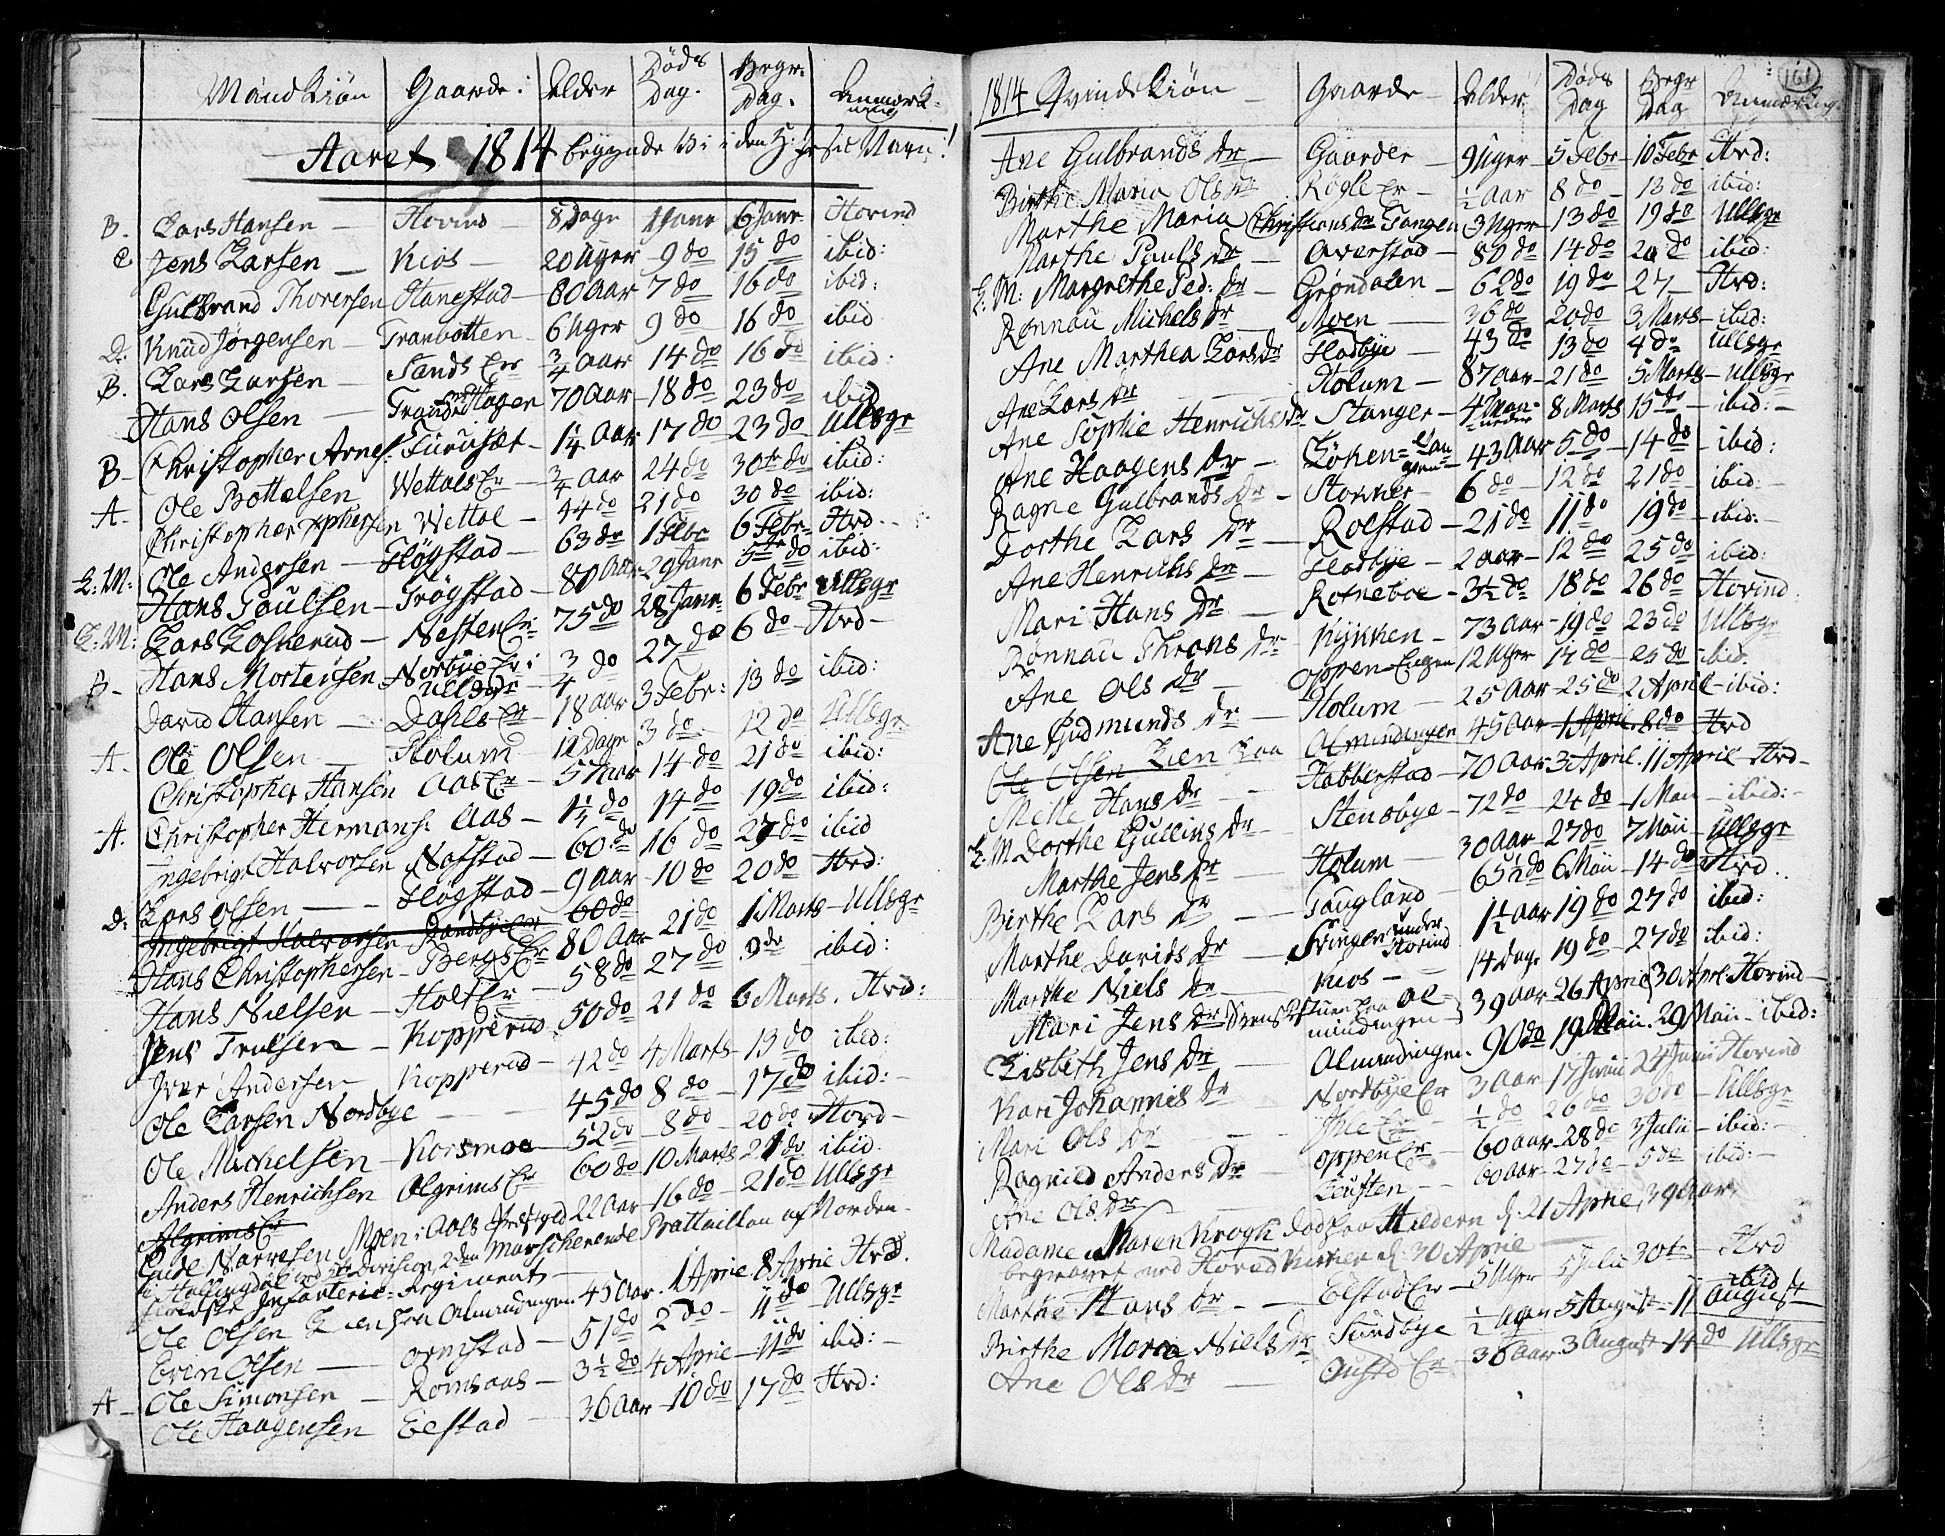 Mand Kiøn Gaarde: Alder Døds Dag. Begr: Dag. Anmærk=ning
Aaret 1814 begynde vi i den H: Jesu Navn!
B. Lars Hansen – Hovind – 8 Dage 1 Janr 6 Janr Hovind
C Jens Larsen – Kios – 20 Uger 9 do 15 do ibid:
Gulbrand Thorersen Hangstad – 80 Aar 7 do 16 do ibid:
D. Knud Jørgensen – Tranbotten – 6 Uger 9 do 16 do ibid
B. Lars Larsen – Sands Er 3/4 Aar 14 do 16 do ibid:
Hans Olsen – Hagen 70 Aar 18 do 23 do ibid
B – Christopher Arnes: Furusæt – 1 1/4 Aar 17 do 23 do Ullsgr
A – Ole Bottolsen Wettals Er – 3/4 Aar 24 do 30te do ibid:
Christopher Xphersen Wettal – 44 do 21 do 30 do ibid:
L: M: Ole Andersen – Fløgstad – 63 do 1 Febr 6 Febr – Hrd. –
Hans Poulsen – Trøgstad – 80 Aar 29 Janr 5te do ibid:
L: M: Lars Loskerud – Nesten Er: 75 do 28 Janr 6 Febr Ullsgr
B – Hans Mortensen – Norbye Er: 3/4 do 27 do 6 do – Hrd –
David Hansen – Dahls Er – 18 Aar 3 Febr: 13 do ibid:
A – Ole Olsen – Holum – 12 Dage 3 do 12 do Ullsgr
Christopher Hansen Aas Er – 57 Aar 14 do 21 do ibid:
A. Christopher Hermans: Aas – 1 1/4 do 14 do 19 do ibid:
Ingebrigt Halvorsen Nafstad – 60 do 16 do 27 do ibid
D: Lars Olsen – – Fløgstad – 9 Aar – 10 do 20 do Hrd:
Ingebrigt Halvorsen 60 do
Hans Christophersen – Bergs Er 80 Aar 21 do 1 Marts – Ullsgr
Hans Nielsen – Holt Er – 58 do 27 do 9 do ibid:
Jens Trulsen – Kopperud 50 do 21 do 6 Marts. Hrd:
Iver Andersen Kopperud – 42 do 4 Marts 13 do ibid:
Ole Larsen Nordbye – – 45 do 8 do – 17 do ibid: –
Ole Michelsen – Korsmoe – 52 do – 8 do – 20 do Hovd –
Anders Henrichsen Algrims Er 60 do 10 Marts 21 do ibid:
Algrims Er
Narvesen Moen i Aals Præstgd 22 Aar – 16 do – 21 do Ullsgr
i Hallingdal ved Division, 2den Marscherende Battaillon af Norden-
Infanterie-Regiment –
Ole Olsen Lien fra Almindingen 45 Aar. 1 Aprie 8 Aprie Hrd.
Even Olsen – Ornstad – 51 do 2 do – 11 do – Ullsgr
A – Ole Simonsen – Romsaas – 3 1/2 do 4 Aprie – 11 do ibid: –
Ole Haagensen Eestad – 36 Aar – 10 do 17 do Hrd:
161
1814 Qvinde Kiøn – Gaarde – Alder Døds Dag Begr Dag Anmærkng.
Ane Gulbrands dr – Gaarder – 9 Uger – 5 Febr – 10 Febr Hrd:
Birthe Maria Ols dr – Røgle Er – 1/2 Aar 8 do – 13 do ibid:
Marthe Maria Christians dr Tangen 3 Uger – 13 do 19 do Ullsgr
Marthe Pauls dr – Averstad – 80 do 14 do 20 do ibid:
L: M: Margrethe Ped: dr – Grøndalen – 62 do 19 do 27 – Hrd:
Rønnau Michels dr – Moen – 36 do 20 do 3 Marts – ibid:
Ane Marthea Lars dr – Fladbye – 43 do 13 do 4 do Ullsgr
Ane Lars dr – – Holum – 87 Aar – 21 do 5 Marts – Ullsgr
Ane Sophie Henrichs dr – Stanger – 4 Maaneder 8 Marts 15 do – ibid: –
Ane Haagens dr – Løken= 43 Aar 5 do – 14 do – ibid:
Ragne Gulbrands dr – Stokker – 6 do – 12 do 21 do ibid: –
Dorthe Lars dr – Rolstad – 21 do 11 do 19 do – ibid: –
Ane Henrichs dr – Fladbye – 2 Aar – 12 do 25 do ibid:
Mari Hans dr – Rotneboe – 3 1/2 do 18 do 26 do Hovind
Rønnau Throns dr – Kykken – 73 Aar – 19 do 23 do Ullsgr
Ane Ols dr – Oppen Engen 12 Uger 14 do – 25 do – ibid.
Ane Gudmunds dr – Holum – 25 Aar – 25 do 2 April – ibid:
Ole Olsen Lien fra Almindingen 45 Aar – 1 April 8 do Hrd
Mette Hans dr – – Habberstad – 70 Aar 3 April. 11 April – Hrd –
L: M. Dorthe Gullins dr – Stensbye – 72 do – 24 do – 1 Mai – ibid: –
Marthe Jens dr – Holum – 30 Aar – 27 do 7 Mai – Ullsgr
Birthe Lars dr – – Faugland – 65 1/2 do 6 Mai – 14 do Hrd.
Marthe Davids dr – Svingen under Hovind 1 1/2 Aar 19 do 27 do ibid:
Marthe Niels dr – Kios – – 14 Dage 19 do – 27 do ibid:
Mari Jens dr fra Al-mindingen – } 39 Aar 26 Aprie 30 Aprl Hovind –
Lisbeth Jens dr – Almindingen. 90 do 19 Mai. 29 Mai – ibid:
Kari Johannis dr Nordbye Er 3 Aar – 17 Junii 24 Junii Hovind
Mari Ols dr – – – Ihle Er – 1/2 do 26 do 30 do – Ullsgr
Ragnild Anders dr Oppen Er – 60 Aar – 28 do 3 Julii – ibid: –
Ane Ols dr – Leusten – – 60 Aar – 27 do – 5 do ibid: –
Madame Maren Krogh død fra Hildern d: 21 Aprie, 39 Aar,
begravet ved Hovind Kirke d: 30 Aprie –
Marthe Hans dr – – Eelstad Er – 5 Uger – 5 Julii 30te – Hrd
Birthe Maria Niels dr – Sundbye 1/2 Aar 5 August – 11 August ibid
Ane Ols dr – Er – 36 Aar – 3 August – 14 do Ullsgr